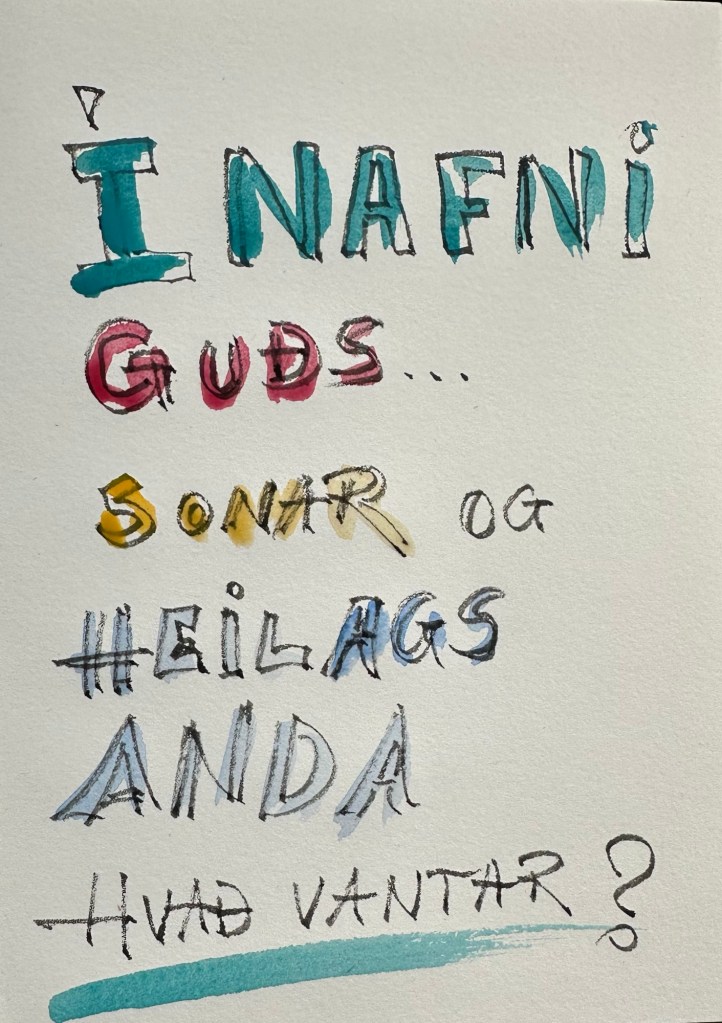 Í NAFNI
GUÐS...
SONAR OG
HEILAGS
ANDA
HVAÐ VANTAR?